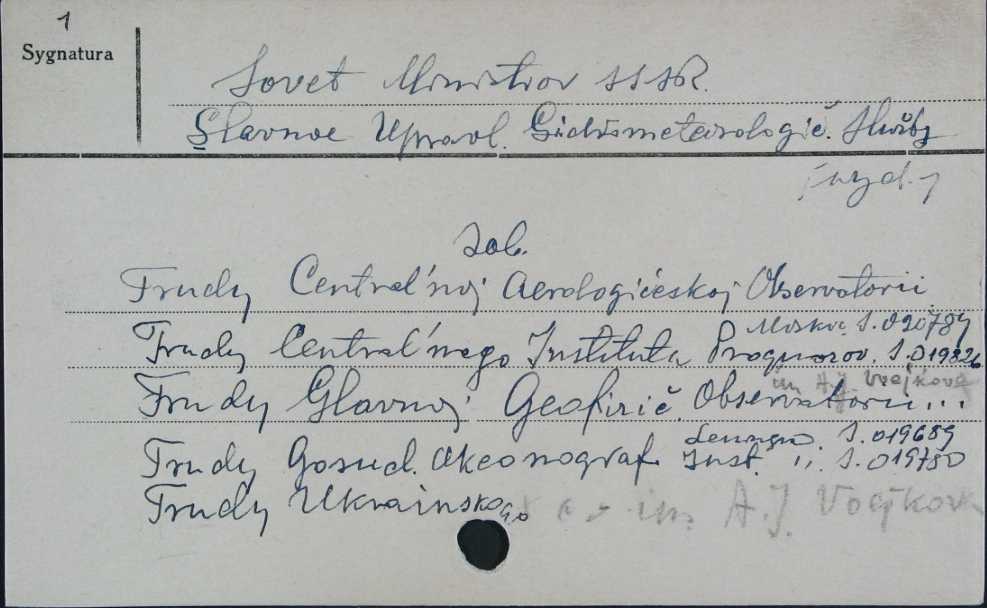 1
Sygnatura
Sovet Ministrov SSSR.
Glavnoe Upravl. Gidrometeorologič. Služby
[wyd.]
zob.
Trudy Central'noj Aerologičeskoj Observatorii
Moskva S. 020789
Trudy Central'nego Instituta Prognozov. S. 019826
im A.J. Voejkova
Trudy Glavnoj Geofizič. Observatorii...
Leningra. S. 019689
Trudy Gosud. Okeonograf. Inst. " S. 019780
Trudy Ukrainskogo
im. A.J. Voejkova